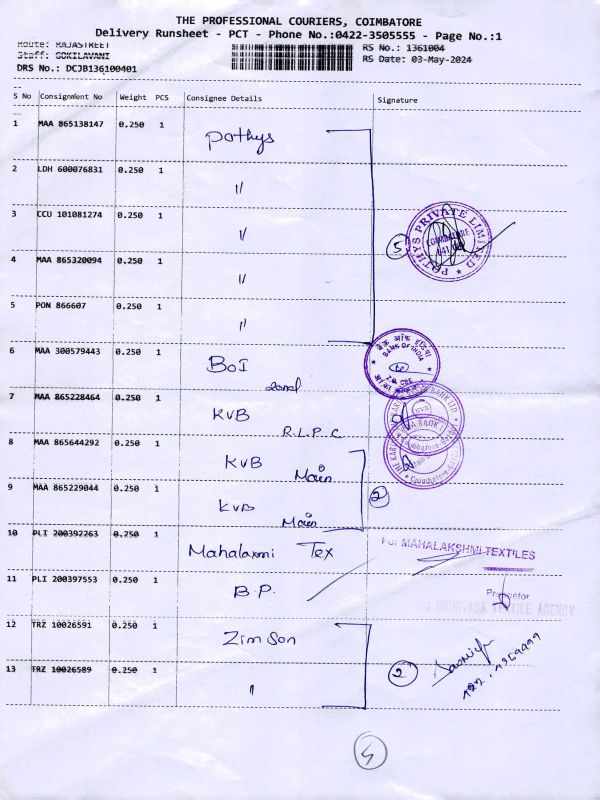 THE PROFESSIONAL COURIERS, COIMBATORE
Delivery Runsheet - PCT - Phone No.:0422-3505555 - Page No.:1
Route: RAJASTREET
Staff: GOKILAVANI
DRS No.: DCJB136100401
RS No.: 1361004
RS Date: 03-May-2024
S No Consignment No Weight PCS Consignee Details Signature
1 MAA 865138147 0.250 1 Pothys
2 LDH 600076831 0.250 1 "
3 CCU 101081274 0.250 1 "
4 MAA 865320094 0.250 1 "
5 PON 866607 0.250 1 "
5
POTHYS PRIVATE LIMITED
COIMBATORE
6 MAA 300579443 0.250 1 BOI
बैंक ऑफ इंडिया
BANK OF INDIA
7 MAA 865228464 0.250 1 KVB
R.L.P.C
8 MAA 865644292 0.250 1 KVB
Main
9 MAA 865229044 0.250 1 KVB
Main
2
10 PLI 200392263 0.250 1 Mahalaxmi Tex
For MAHALAKSHMI TEXTILES
Proprietor
11 PLI 200397553 0.250 1 B.P.
For SRINIVASA TEXTILE AGENCY
12 TRZ 10026591 0.250 1 Zimson
13 TRZ 10026589 0.250 1 "
2